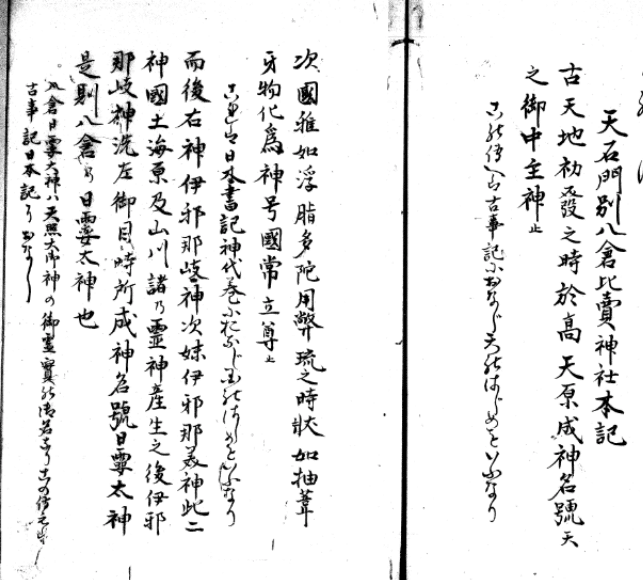 天石門別八倉比賣神社本記
古天地初發之時於高天原成神名號天
之御中主神止
この傳へら古事記におなじ天のはじめをいふなり
次國雅如浮脂多陀用弊琉之時狀如抽葦
牙物化爲神号國常立尊止
これは日本書記神代卷におなじ國のはじめをいふなり
而後右神伊邪那岐神次妹伊邪那美神此二
神國土海原及山川諸乃靈神産生之後伊邪
那岐神洗左御目時所成神名號日孁太神
是則八倉乃日孁太神也
八倉日孁大神ハ天照大御神の御霊實の御名なり この傳
古事記日本記におなじ